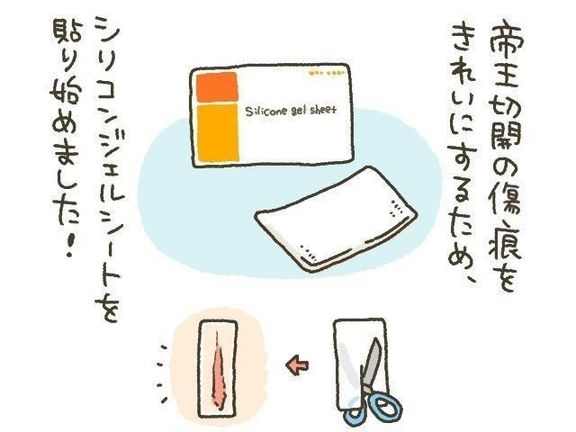 帝王切開の傷痕を
きれいにするため、
Silicone gel sheet
シリコンジェルシートを
貼り始めました!